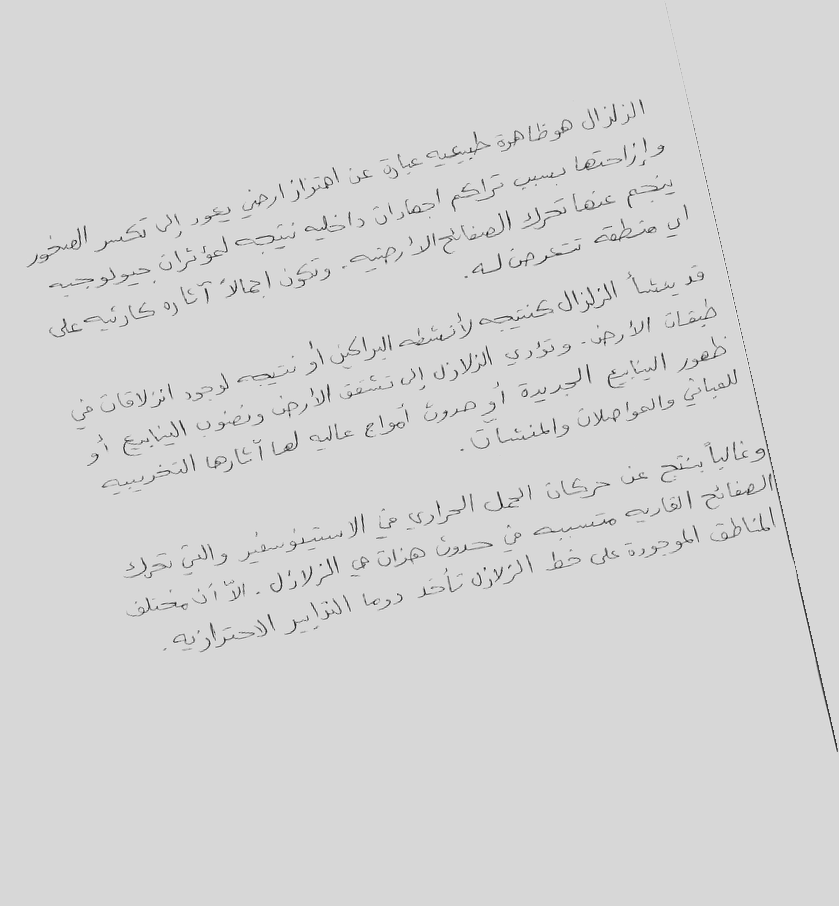 الزلزال هو ظاهرة طبيعيه عبارة عن اهتزاز ارضي يعود إلى تكسر الصخور
وإزاحتها بسبب تراكم اجهادات داخليه نتيجه لمؤثرات جيولوجيه
ينجم عنها تحرك الصفائح الأرضيه. وتكون اجمالاً آثاره كارثيه على
اي منطقة تتعرض له.
قد ينشأ الزلزال كنتيجه لأنشطه البراكين أو نتيجه لوجود انزلاقات في
طبقات الأرض. وتؤدي الزلازل إلى تشقق الأرض ونضوب الينابيع أو
ظهور الينابيع الجديدة أو حدوث أمواج عاليه لها آثارها التخريبيه
للمباني والمواصلات والمنشآت.
وغالباً ينتج عن حركات الحمل الحراري في الاستينوسفير والتي تحرك
الصفائح القاريه متسببه في حدوث هزات هي الزلازل. الاّ أن مختلف
المناطق الموجودة على خط الزلازل تأخذ دوما التدابير الاحترازيه.